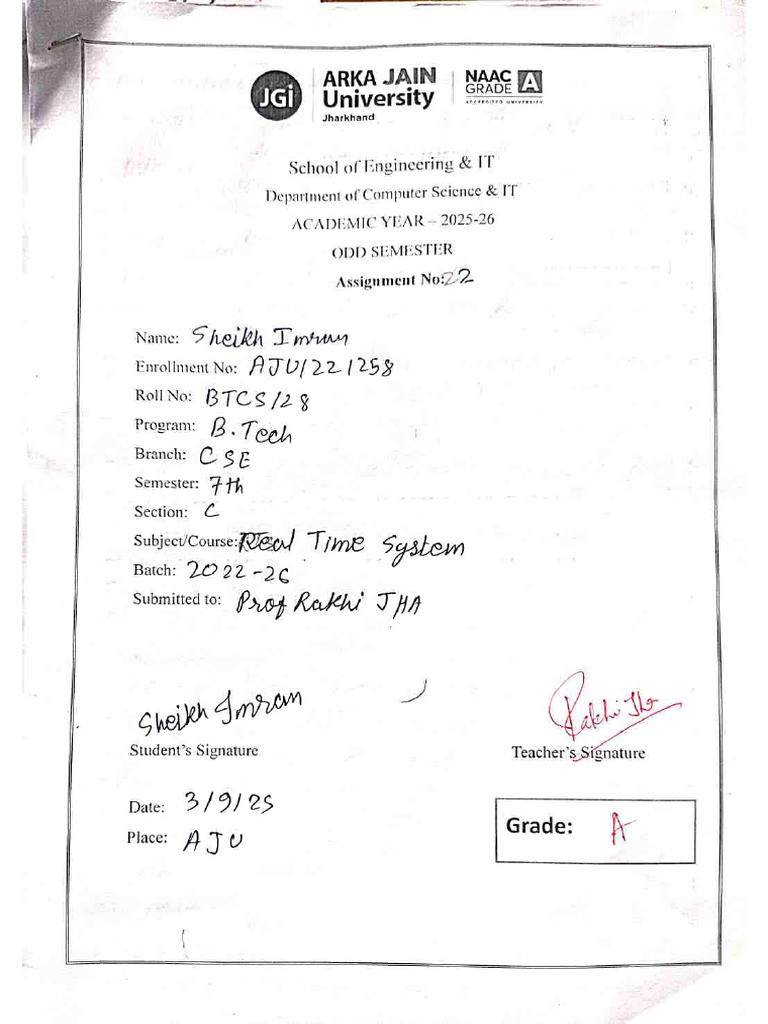 JGi
ARKA JAIN
University
Jharkhand
NAAC
GRADE A
ACCREDITED UNIVERSITY
School of Engineering & IT
Department of Computer Science & IT
ACADEMIC YEAR – 2025-26
ODD SEMESTER
Assignment No: 22
Name: Sheikh Imran
Enrollment No: AJU/221258
Roll No: BTCS/28
Program: B.Tech
Branch: CSE
Semester: 7th
Section: C
Subject/Course: Real Time System
Batch: 2022-26
Submitted to: Prof Rakhi JHA
Sheikh Imran
Student's Signature
Rakhi Jha
Teacher's Signature
Date: 3/9/25
Place: AJU
Grade: A